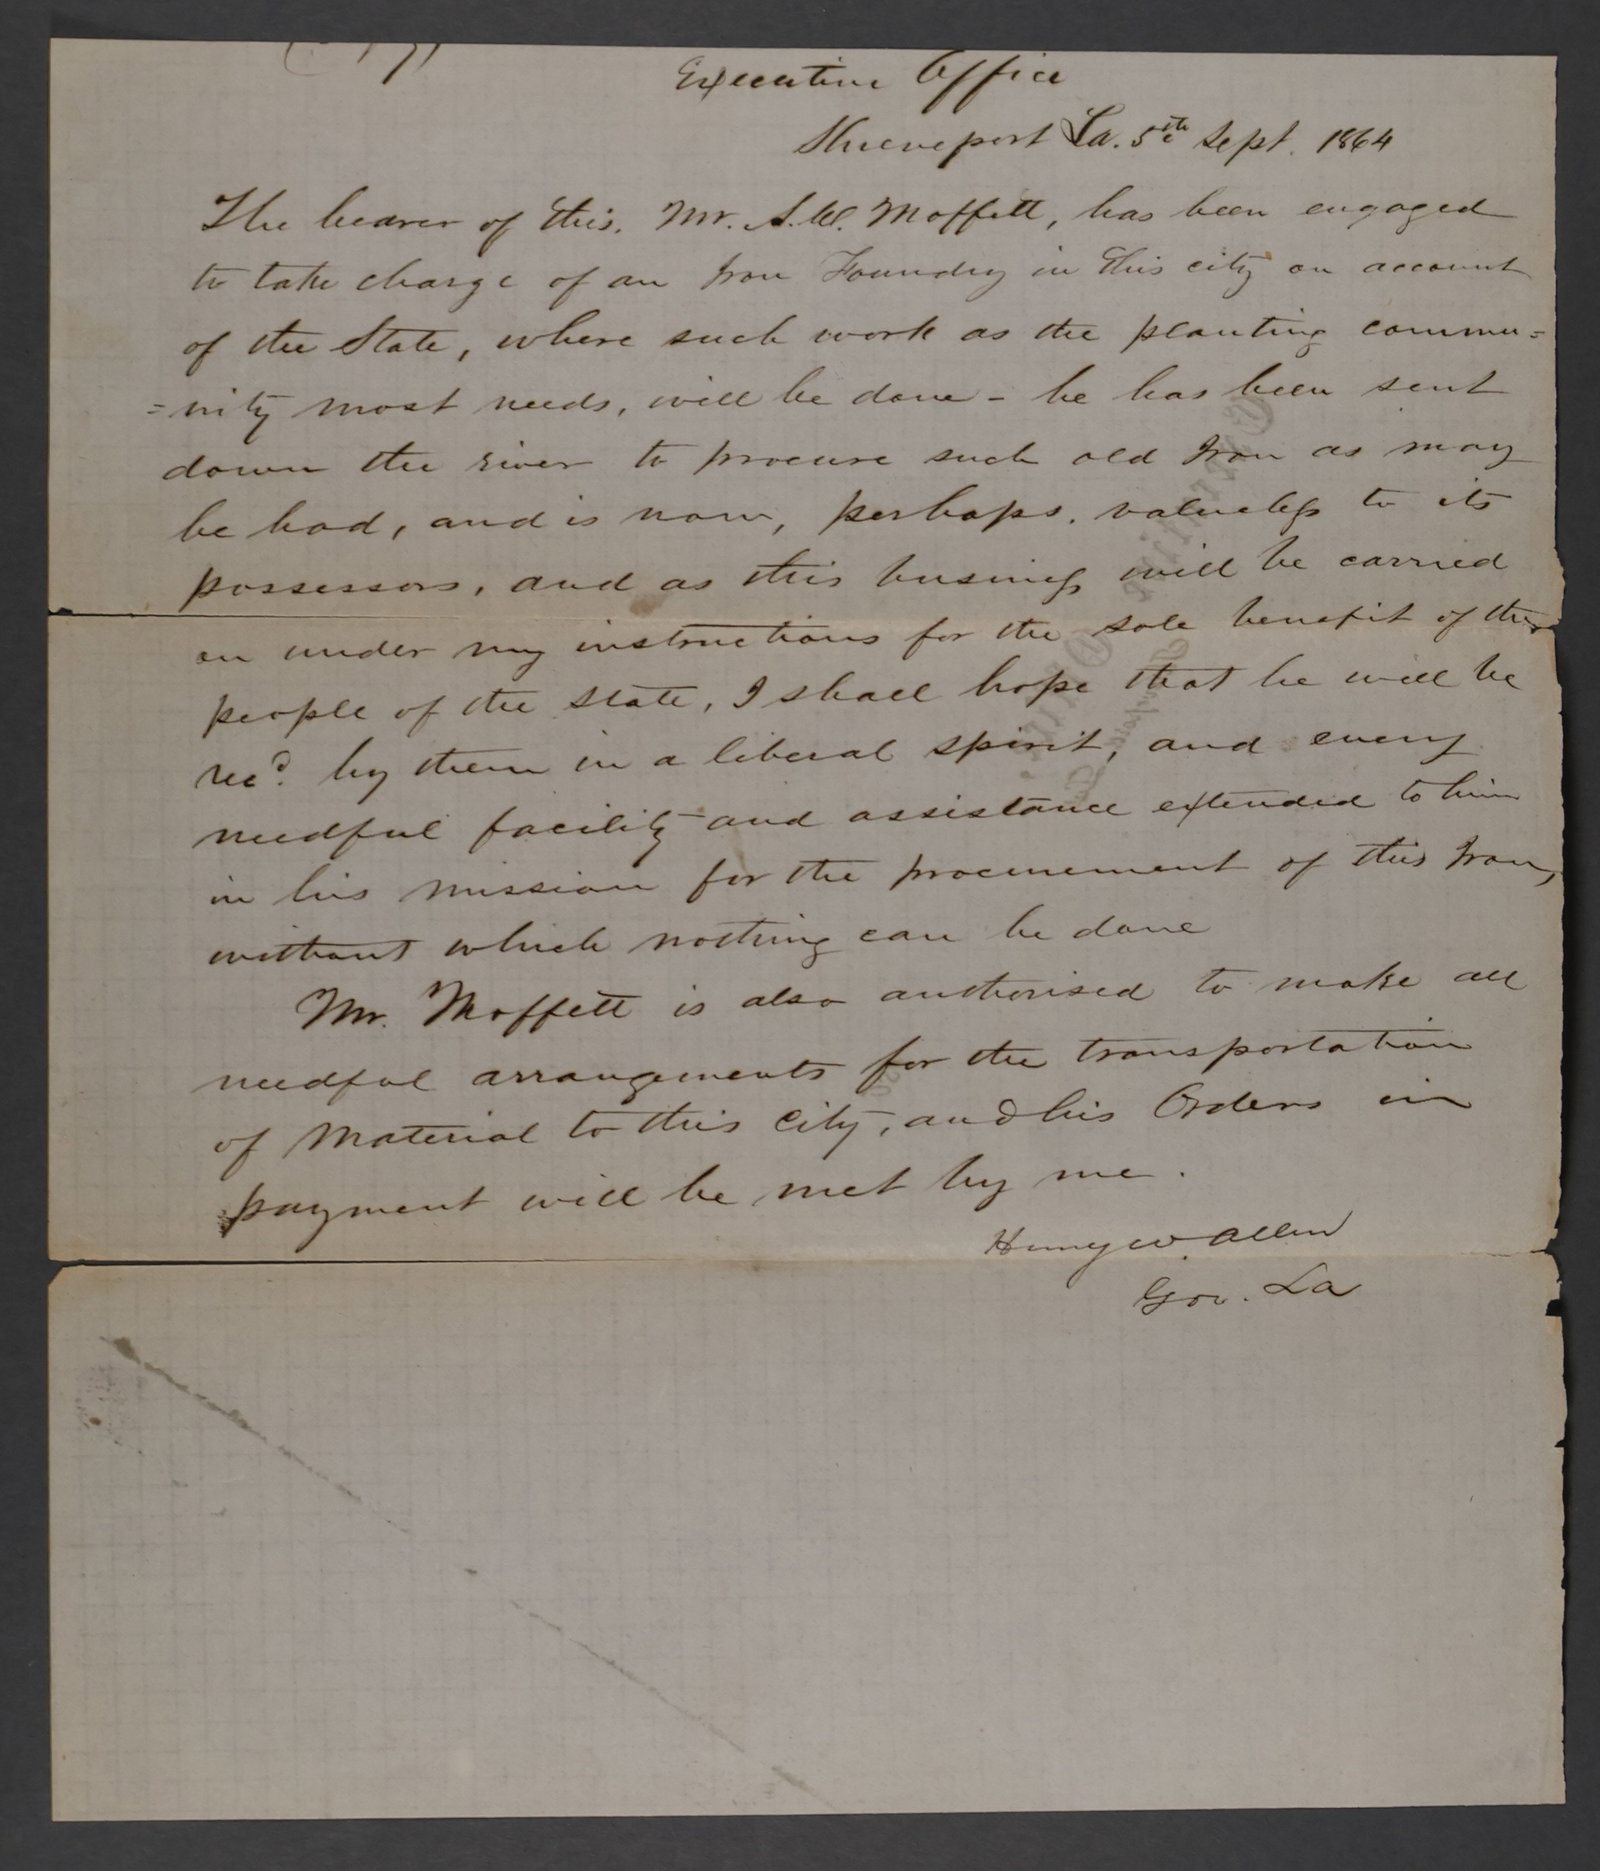 Executive Office
Shreveport La. 5th Sept. 1864
The bearer of this. Mr. S. W. Moffett, has been engaged
to take charge of an Iron Foundry in this city on account
of the State, where such work as the planting commu=
=nity most needs, will be done - he has been sent
down the river to procure such old Iron as may
be had, and is now, perhaps, valueless to its
possessors, and as this business will be carried
on under my instructions for the sole benefit of the
people of the state, I shall hope that he will be
recd. by them in a liberal spirit, and every
needful facility and assistance extended to him
in his mission for the procurement of this Iron,
without which nothing can be done
Mr. Moffett is also authorised to make all
needful arrangements for the transportation
of Material to this City, and his Orders in
payment will be met by me.
Henry W. Allen
Gov. La